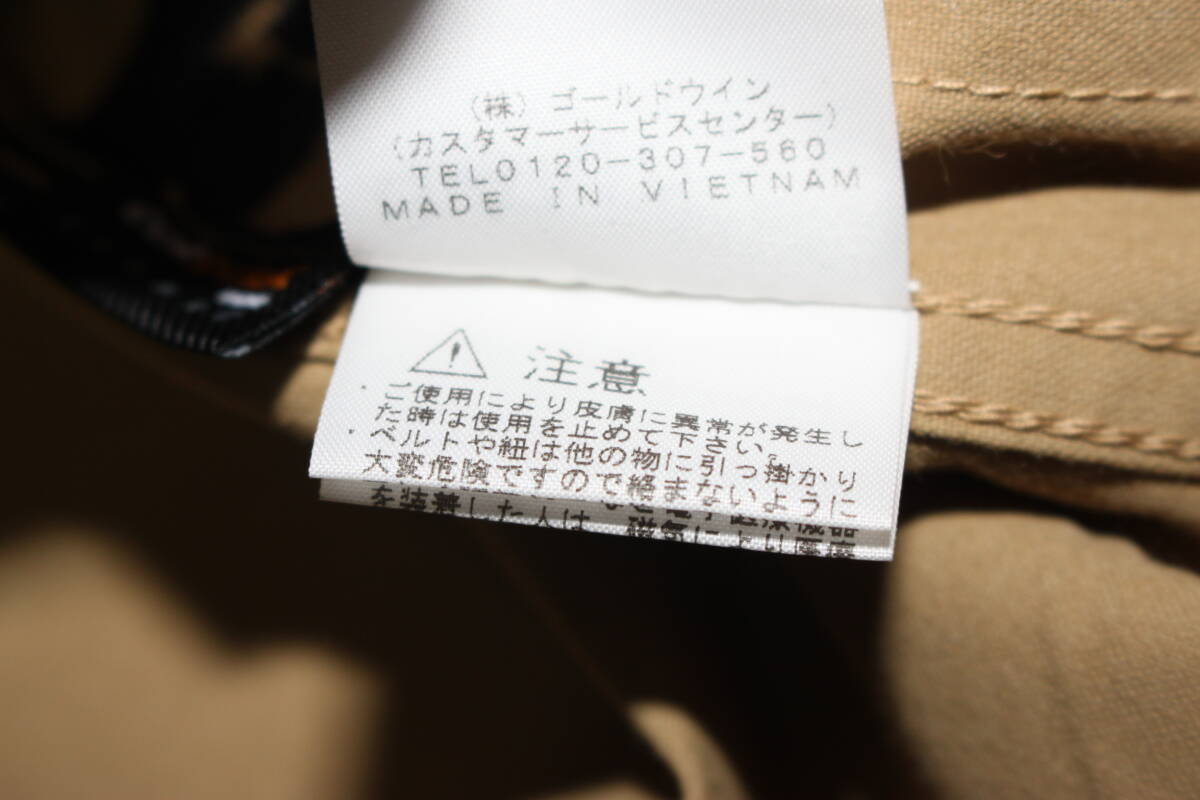 (株) ゴールドウイン
(カスタマーサービスセンター)
TEL0120-307-560
MADE IN VIETNAM
注意
・ご使用により皮膚に異常が発生し
た時は使用を止めて下さい。
・ベルトや紐は他の物に引っ掛かり
大変危険ですので絡まないように
を装着した人は、磁気により医療